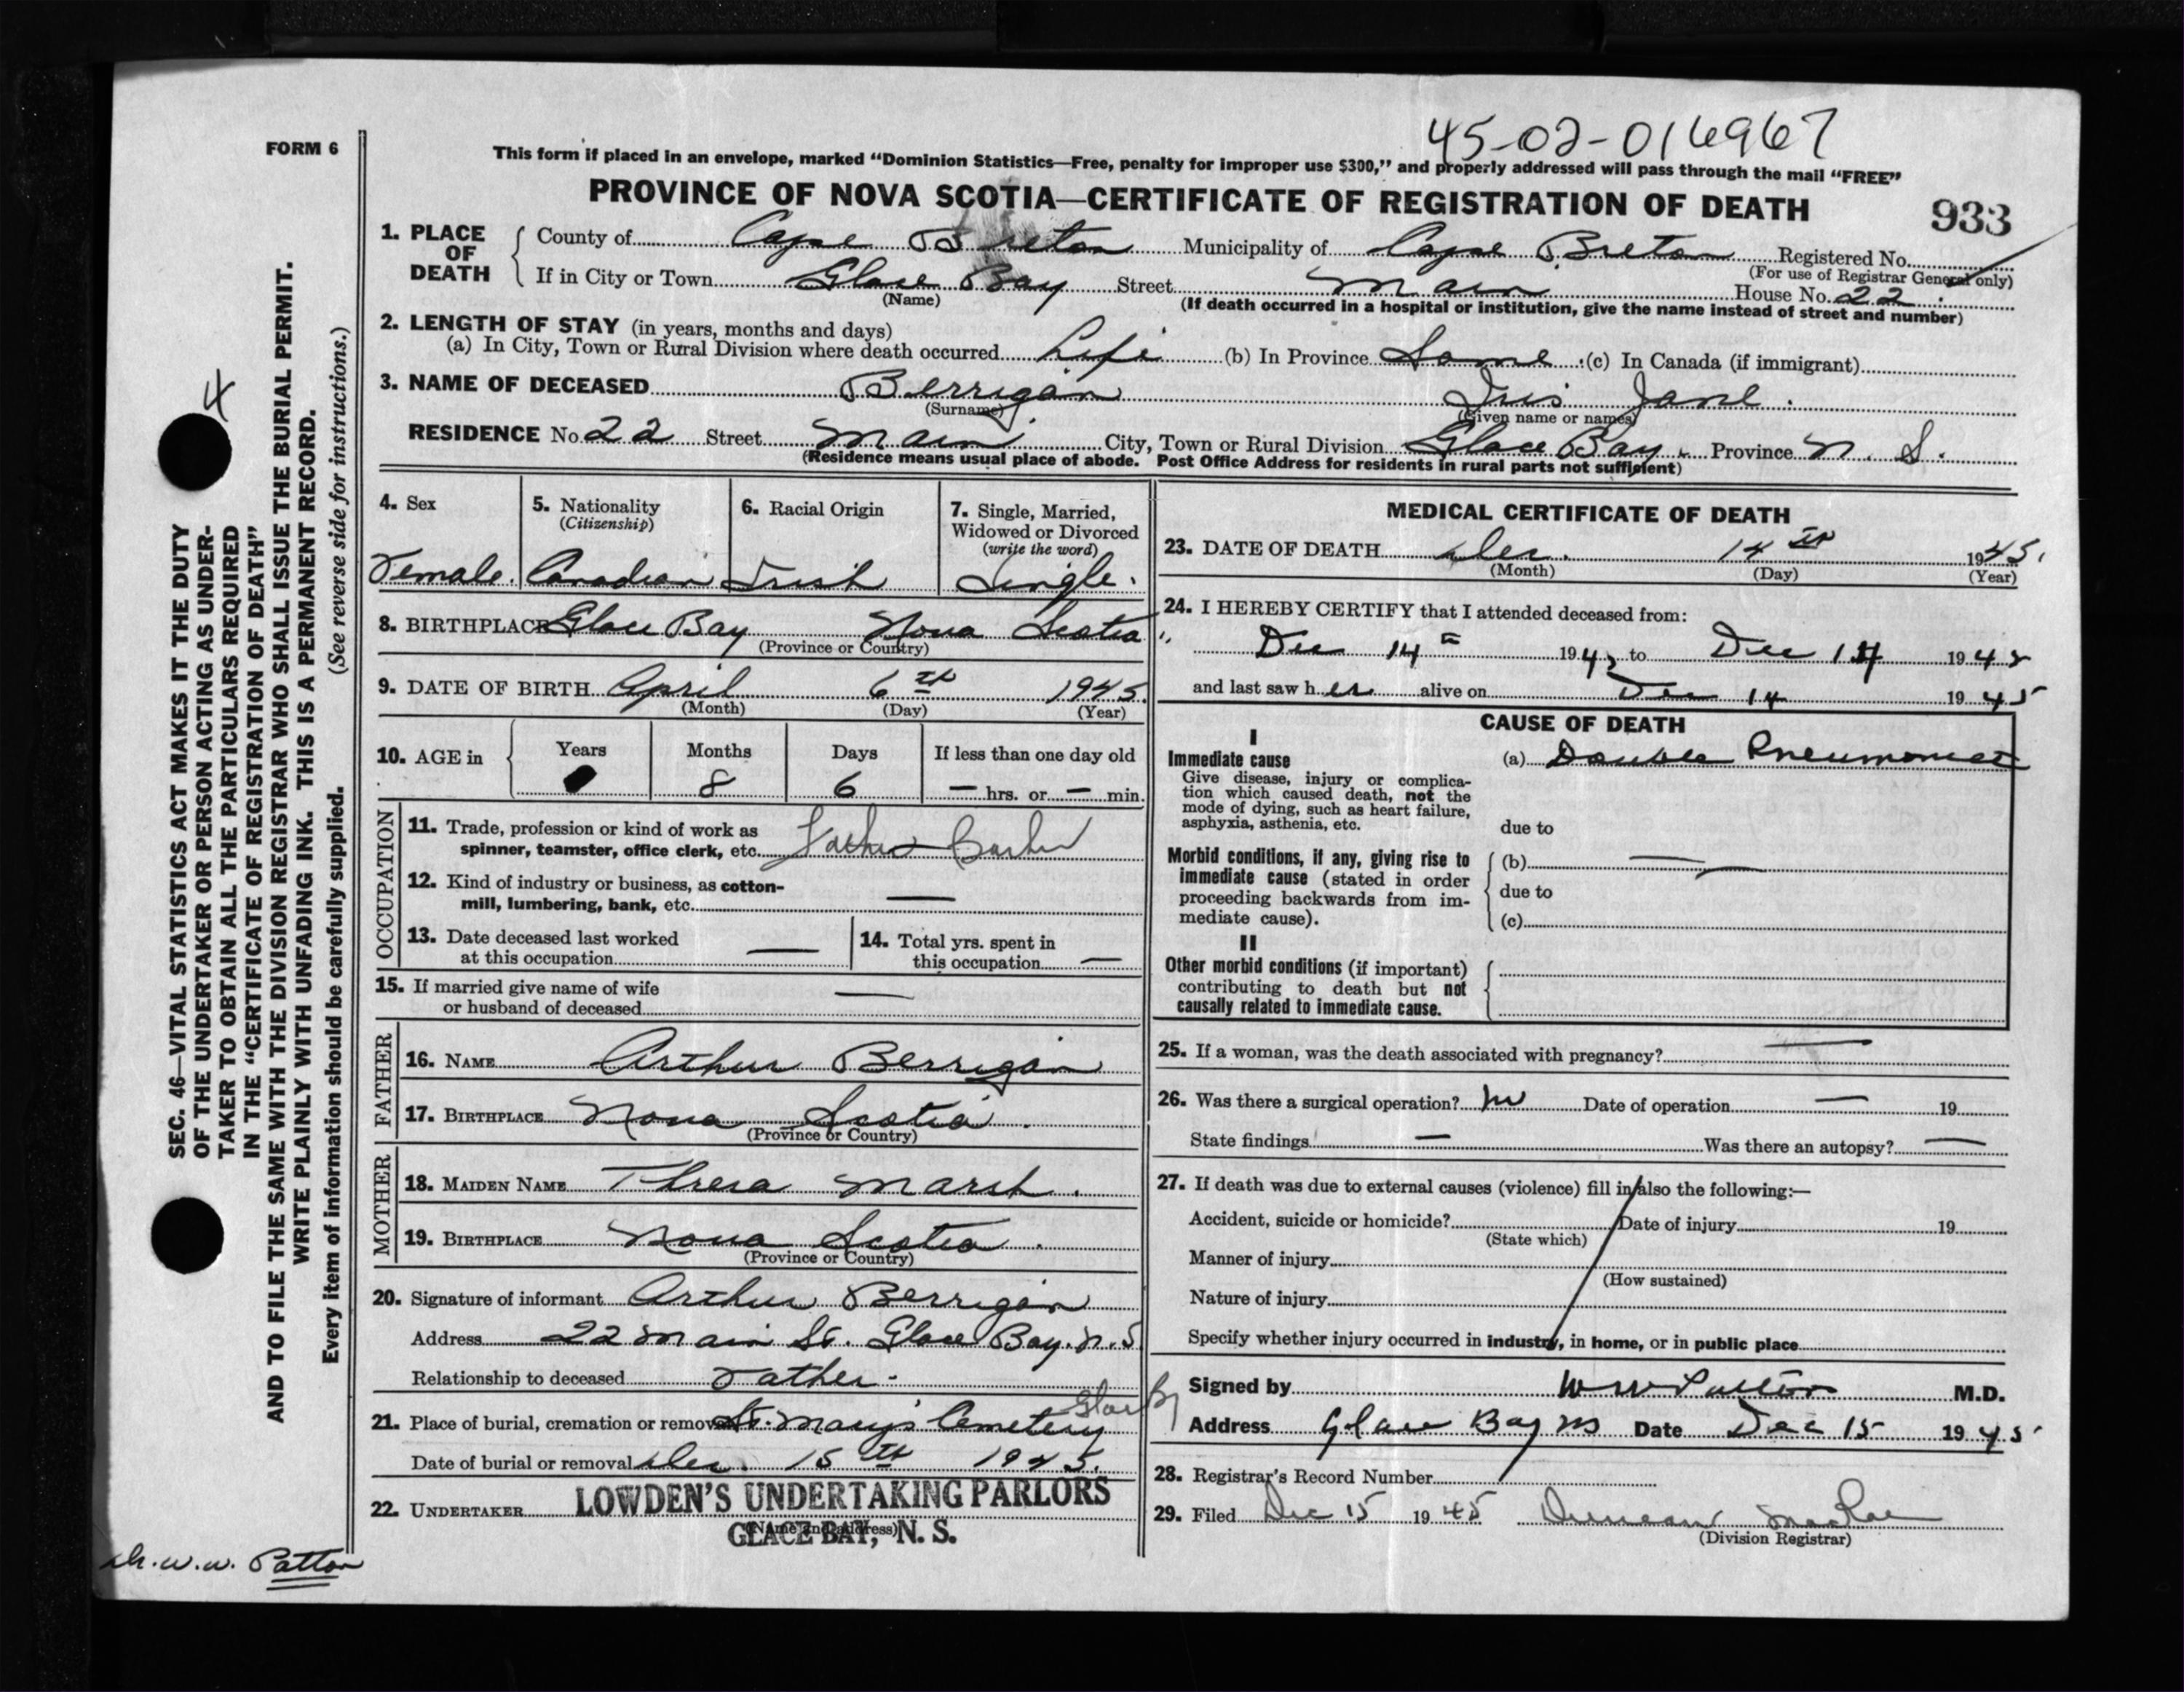 45-02-016967
FORM 6
This form if placed in an envelope, marked “Dominion Statistics—Free, penalty for improper use $300,” and properly addressed will pass through the mail “FREE”
PROVINCE OF NOVA SCOTIA—CERTIFICATE OF REGISTRATION OF DEATH 933
1. PLACE OF DEATH County of Cape Breton Municipality of Cape Breton Registered No.
(For use of Registrar General only)
If in City or Town Glace Bay Street Main House No. 22.
(Name) (If death occurred in a hospital or institution, give the name instead of street and number)
2. LENGTH OF STAY (in years, months and days)
(a) In City, Town or Rural Division where death occurred Life (b) In Province Same (c) In Canada (if immigrant)
3. NAME OF DECEASED Berrigan Iris Jane.
(Surname) (Given name or names)
RESIDENCE No. 22 Street Main City, Town or Rural Division Glace Bay. Province N. S.
(Residence means usual place of abode. Post Office Address for residents in rural parts not sufficient)
4. Sex 5. Nationality 6. Racial Origin 7. Single, Married,
(Citizenship) Widowed or Divorced
(write the word)
Female. Canadian Irish Single.
8. BIRTHPLACE Glace Bay Nova Scotia
(Province or Country)
9. DATE OF BIRTH April 6th 1945.
(Month) (Day) (Year)
10. AGE in Years Months Days If less than one day old
8 6 — hrs. or — min.
OCCUPATION
11. Trade, profession or kind of work as
spinner, teamster, office clerk, etc. Father
12. Kind of industry or business, as cotton-
mill, lumbering, bank, etc. —
13. Date deceased last worked
at this occupation — 14. Total yrs. spent in
this occupation —
15. If married give name of wife
or husband of deceased —
FATHER
16. NAME Arthur Berrigan
17. BIRTHPLACE Nova Scotia.
(Province or Country)
MOTHER
18. MAIDEN NAME Thresa Marsh.
19. BIRTHPLACE Nova Scotia.
(Province or Country)
20. Signature of informant Arthur Berrigan
Address 22 Main St. Glace Bay. N. S
Relationship to deceased Father.
21. Place of burial, cremation or removal St. Mary's Cemetery Glace B
Date of burial or removal Dec. 15th 1945.
22. UNDERTAKER LOWDEN'S UNDERTAKING PARLORS
(Name and address)
GLACE BAY, N. S.
MEDICAL CERTIFICATE OF DEATH
23. DATE OF DEATH Dec. 14th 1945.
(Month) (Day) (Year)
24. I HEREBY CERTIFY that I attended deceased from:
Dec 14th 1945 to Dec 14 1945
and last saw her alive on Dec 14 1945
CAUSE OF DEATH
I
Immediate cause (a) Double Pneumonia
Give disease, injury or complica-
tion which caused death, not the
mode of dying, such as heart failure,
asphyxia, asthenia, etc.
due to
Morbid conditions, if any, giving rise to (b) —
immediate cause (stated in order
proceeding backwards from im- due to
mediate cause). (c)
II
Other morbid conditions (if important)
contributing to death but not
causally related to immediate cause.
25. If a woman, was the death associated with pregnancy? —
26. Was there a surgical operation? no Date of operation — 19
State findings — Was there an autopsy? —
27. If death was due to external causes (violence) fill in also the following:—
Accident, suicide or homicide? Date of injury 19
(State which)
Manner of injury
(How sustained)
Nature of injury
Specify whether injury occurred in industry, in home, or in public place
Signed by W W Patton M.D.
Address Glace Bay NS Date Dec 15 1945
28. Registrar's Record Number
29. Filed Dec 15 1945 Duncan MacRae
(Division Registrar)
4
SEC. 46—VITAL STATISTICS ACT MAKES IT THE DUTY
OF THE UNDERTAKER OR PERSON ACTING AS UNDER-
TAKER TO OBTAIN ALL THE PARTICULARS REQUIRED
IN THE “CERTIFICATE OF REGISTRATION OF DEATH”
AND TO FILE THE SAME WITH THE DIVISION REGISTRAR WHO SHALL ISSUE THE BURIAL PERMIT.
WRITE PLAINLY WITH UNFADING INK. THIS IS A PERMANENT RECORD.
Every item of information should be carefully supplied. (See reverse side for instructions.)
Dr. W. W. Patton